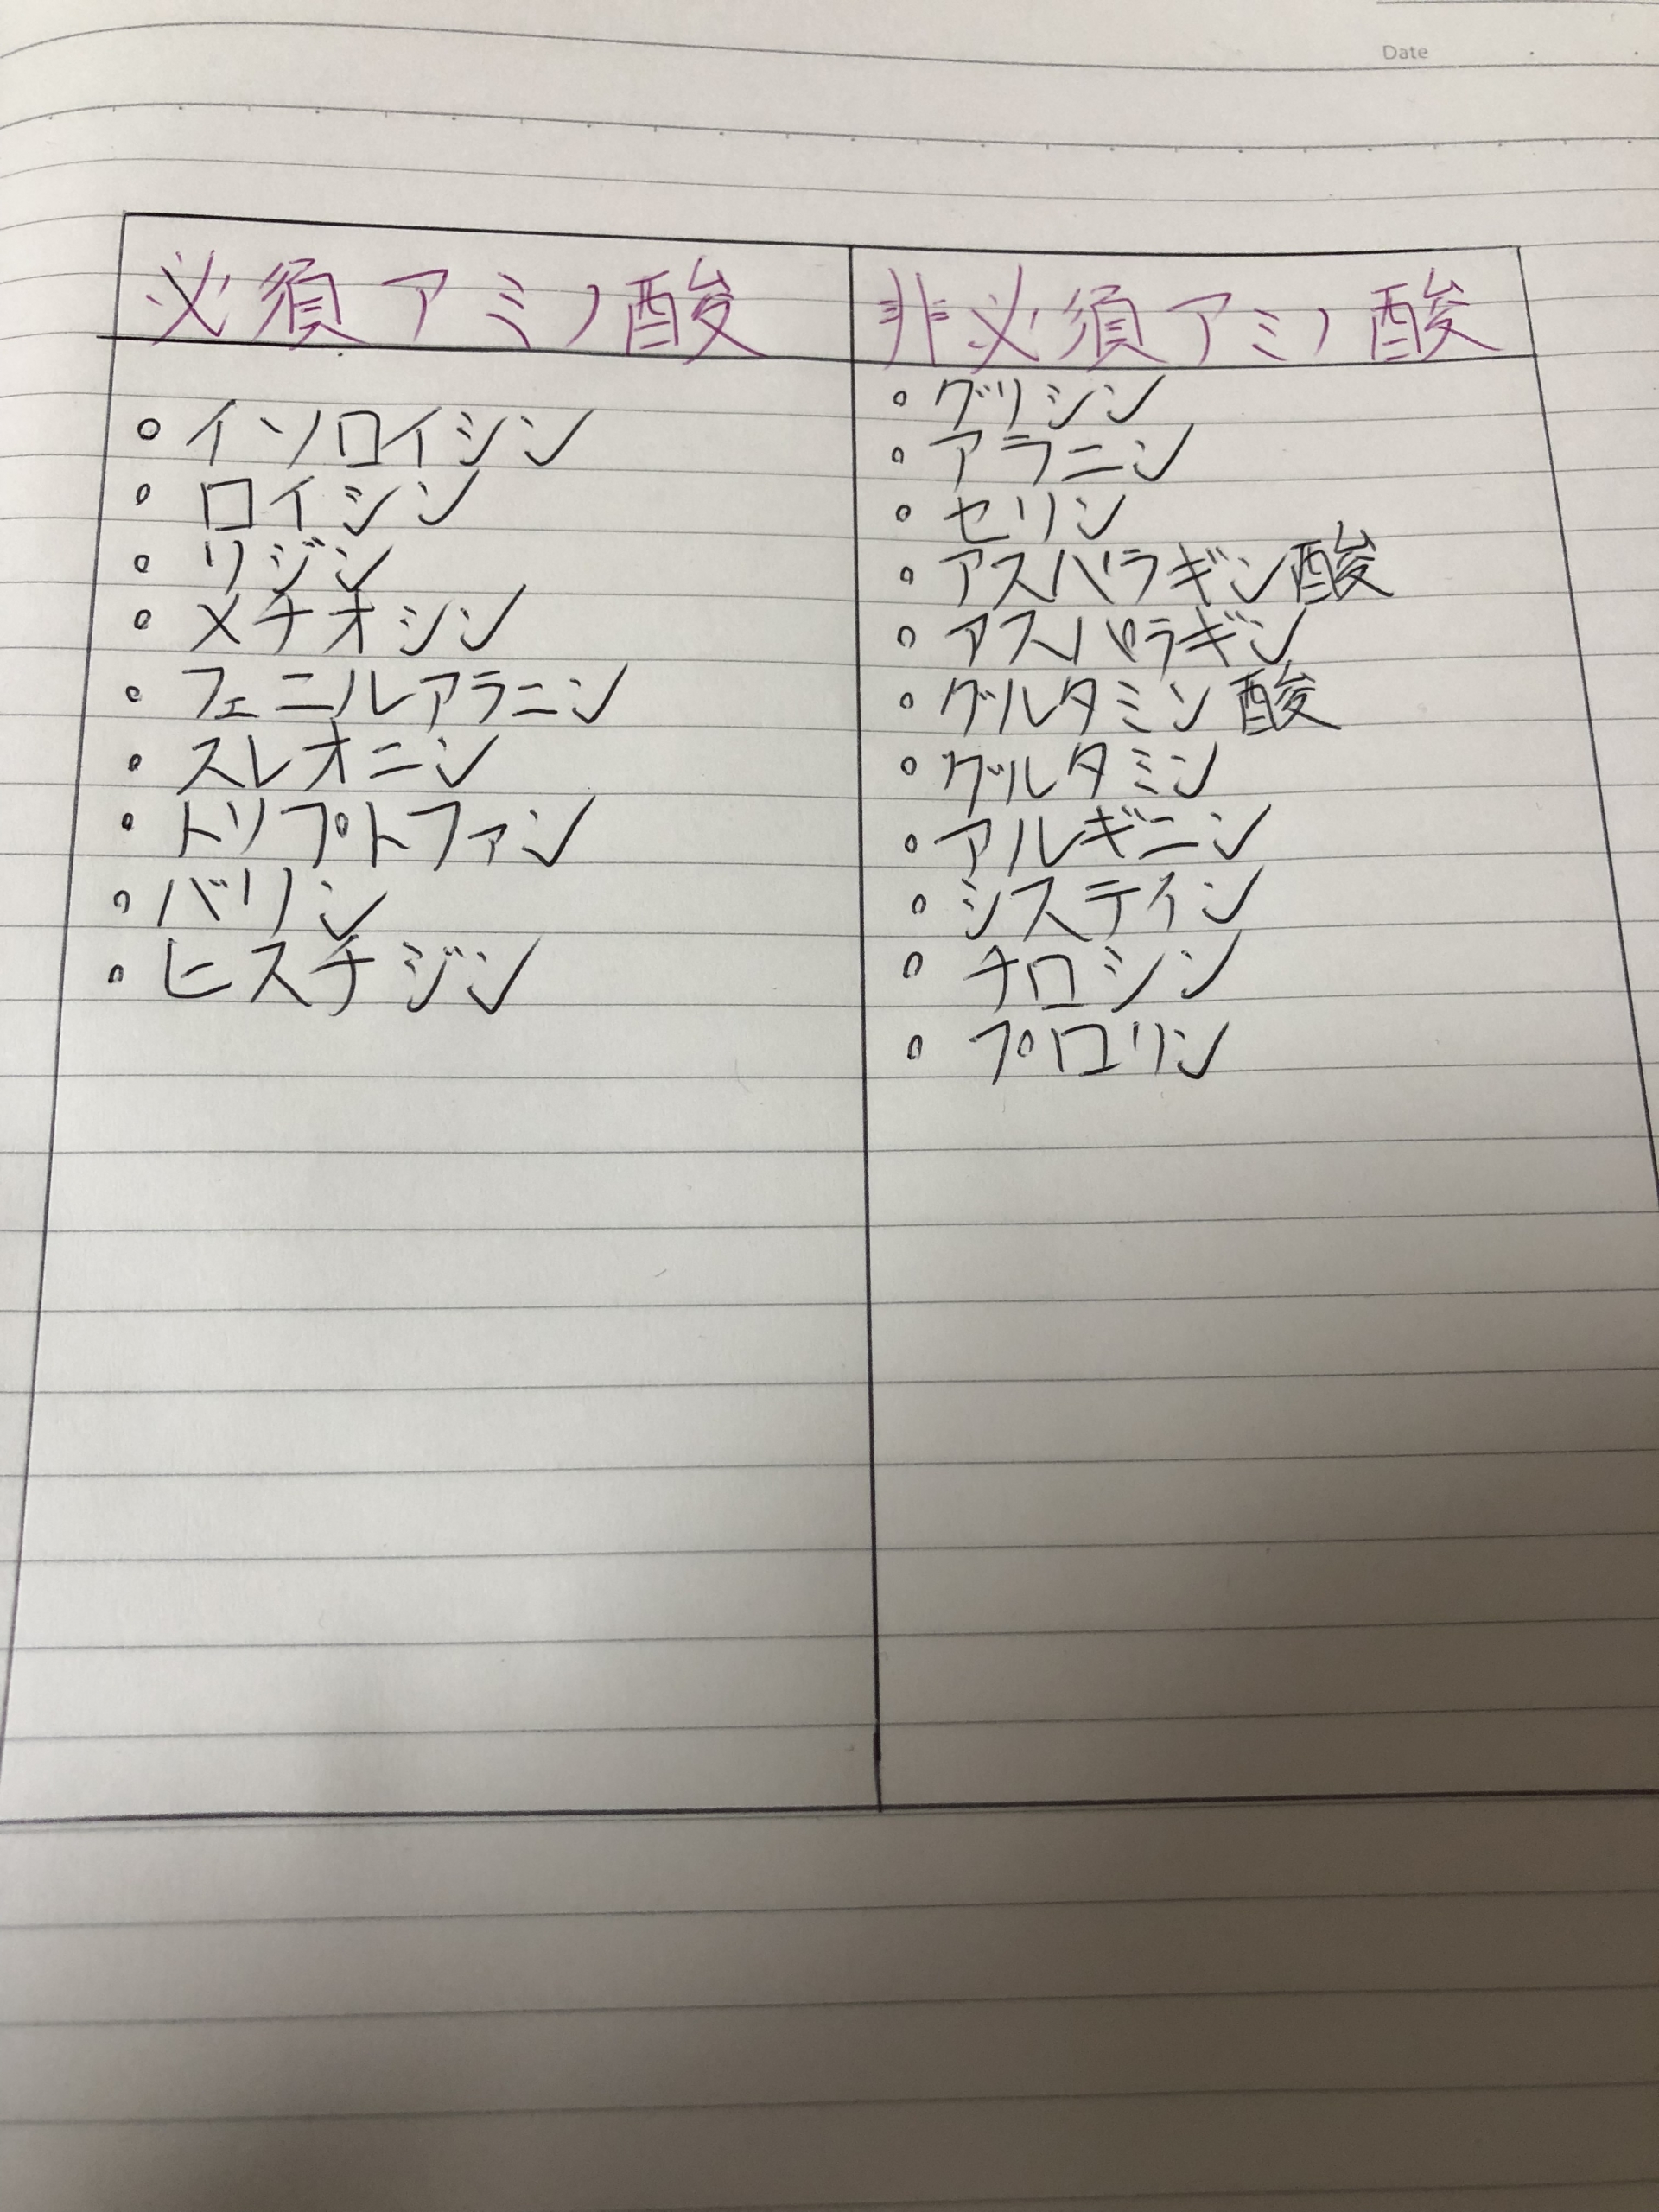 Date
必須アミノ酸
非必須アミノ酸
・イソロイシン
・ロイシン
・リジン
・メチオシン
・フェニルアラニン
・スレオニン
・トリプトファン
・バリン
・ヒスチジン
・グリシン
・アラニン
・セリン
・アスパラギン酸
・アスパラギン
・グルタミン酸
・グルタミン
・アルギニン
・システイン
・チロシン
・プロリン